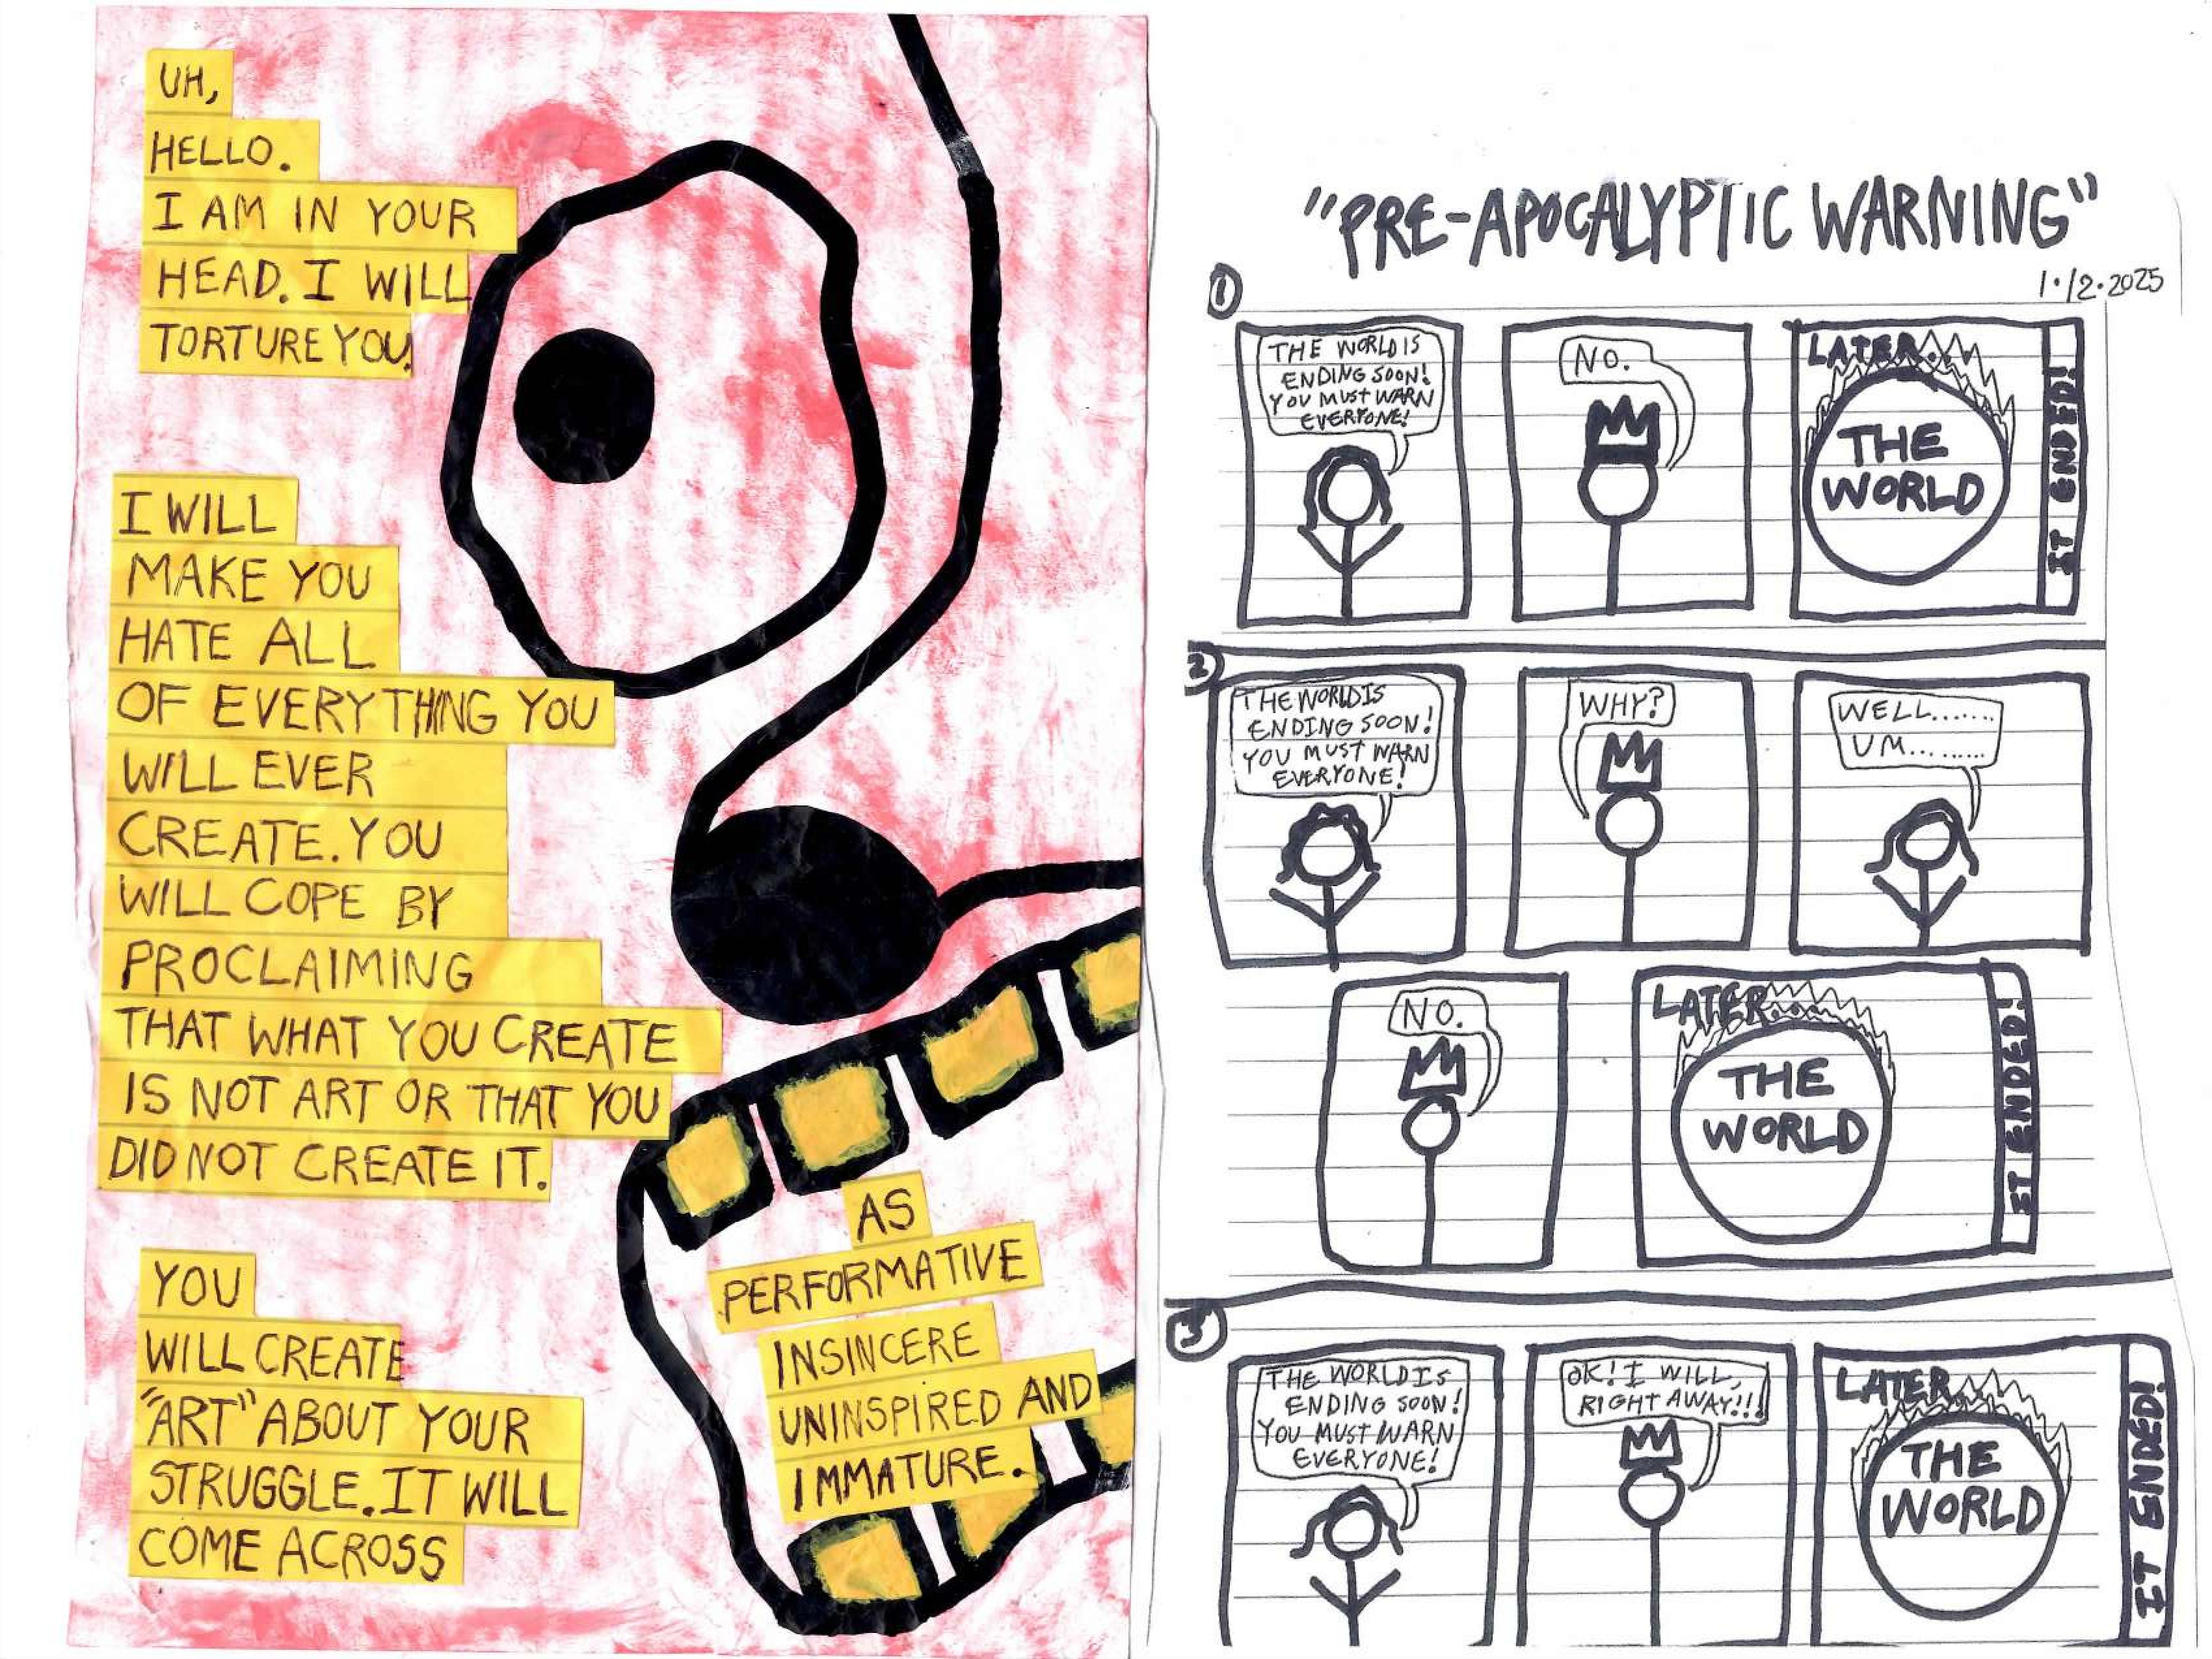 UH,
HELLO.
I AM IN YOUR
HEAD. I WILL
TORTURE YOU.
I WILL
MAKE YOU
HATE ALL
OF EVERYTHING YOU
WILL EVER
CREATE. YOU
WILL COPE BY
PROCLAIMING
THAT WHAT YOU CREATE
IS NOT ART OR THAT YOU
DID NOT CREATE IT.
YOU
WILL CREATE
"ART" ABOUT YOUR
STRUGGLE. IT WILL
COME ACROSS
AS
PERFORMATIVE
INSINCERE
UNINSPIRED AND
IMMATURE.
"PRE-APOCALYPTIC WARNING"
1.12.2025
1
THE WORLD IS
ENDING SOON!
YOU MUST WARN
EVERYONE!
NO.
LATER...
THE
WORLD
IT ENDED!
2
THE WORLD IS
ENDING SOON!
YOU MUST WARN
EVERYONE!
WHY?
WELL.......
UM.........
NO.
LATER...
THE
WORLD
IT ENDED!
3
THE WORLD IS
ENDING SOON!
YOU MUST WARN
EVERYONE!
OK! I WILL,
RIGHT AWAY!!!
LATER...
THE
WORLD
IT ENDED!